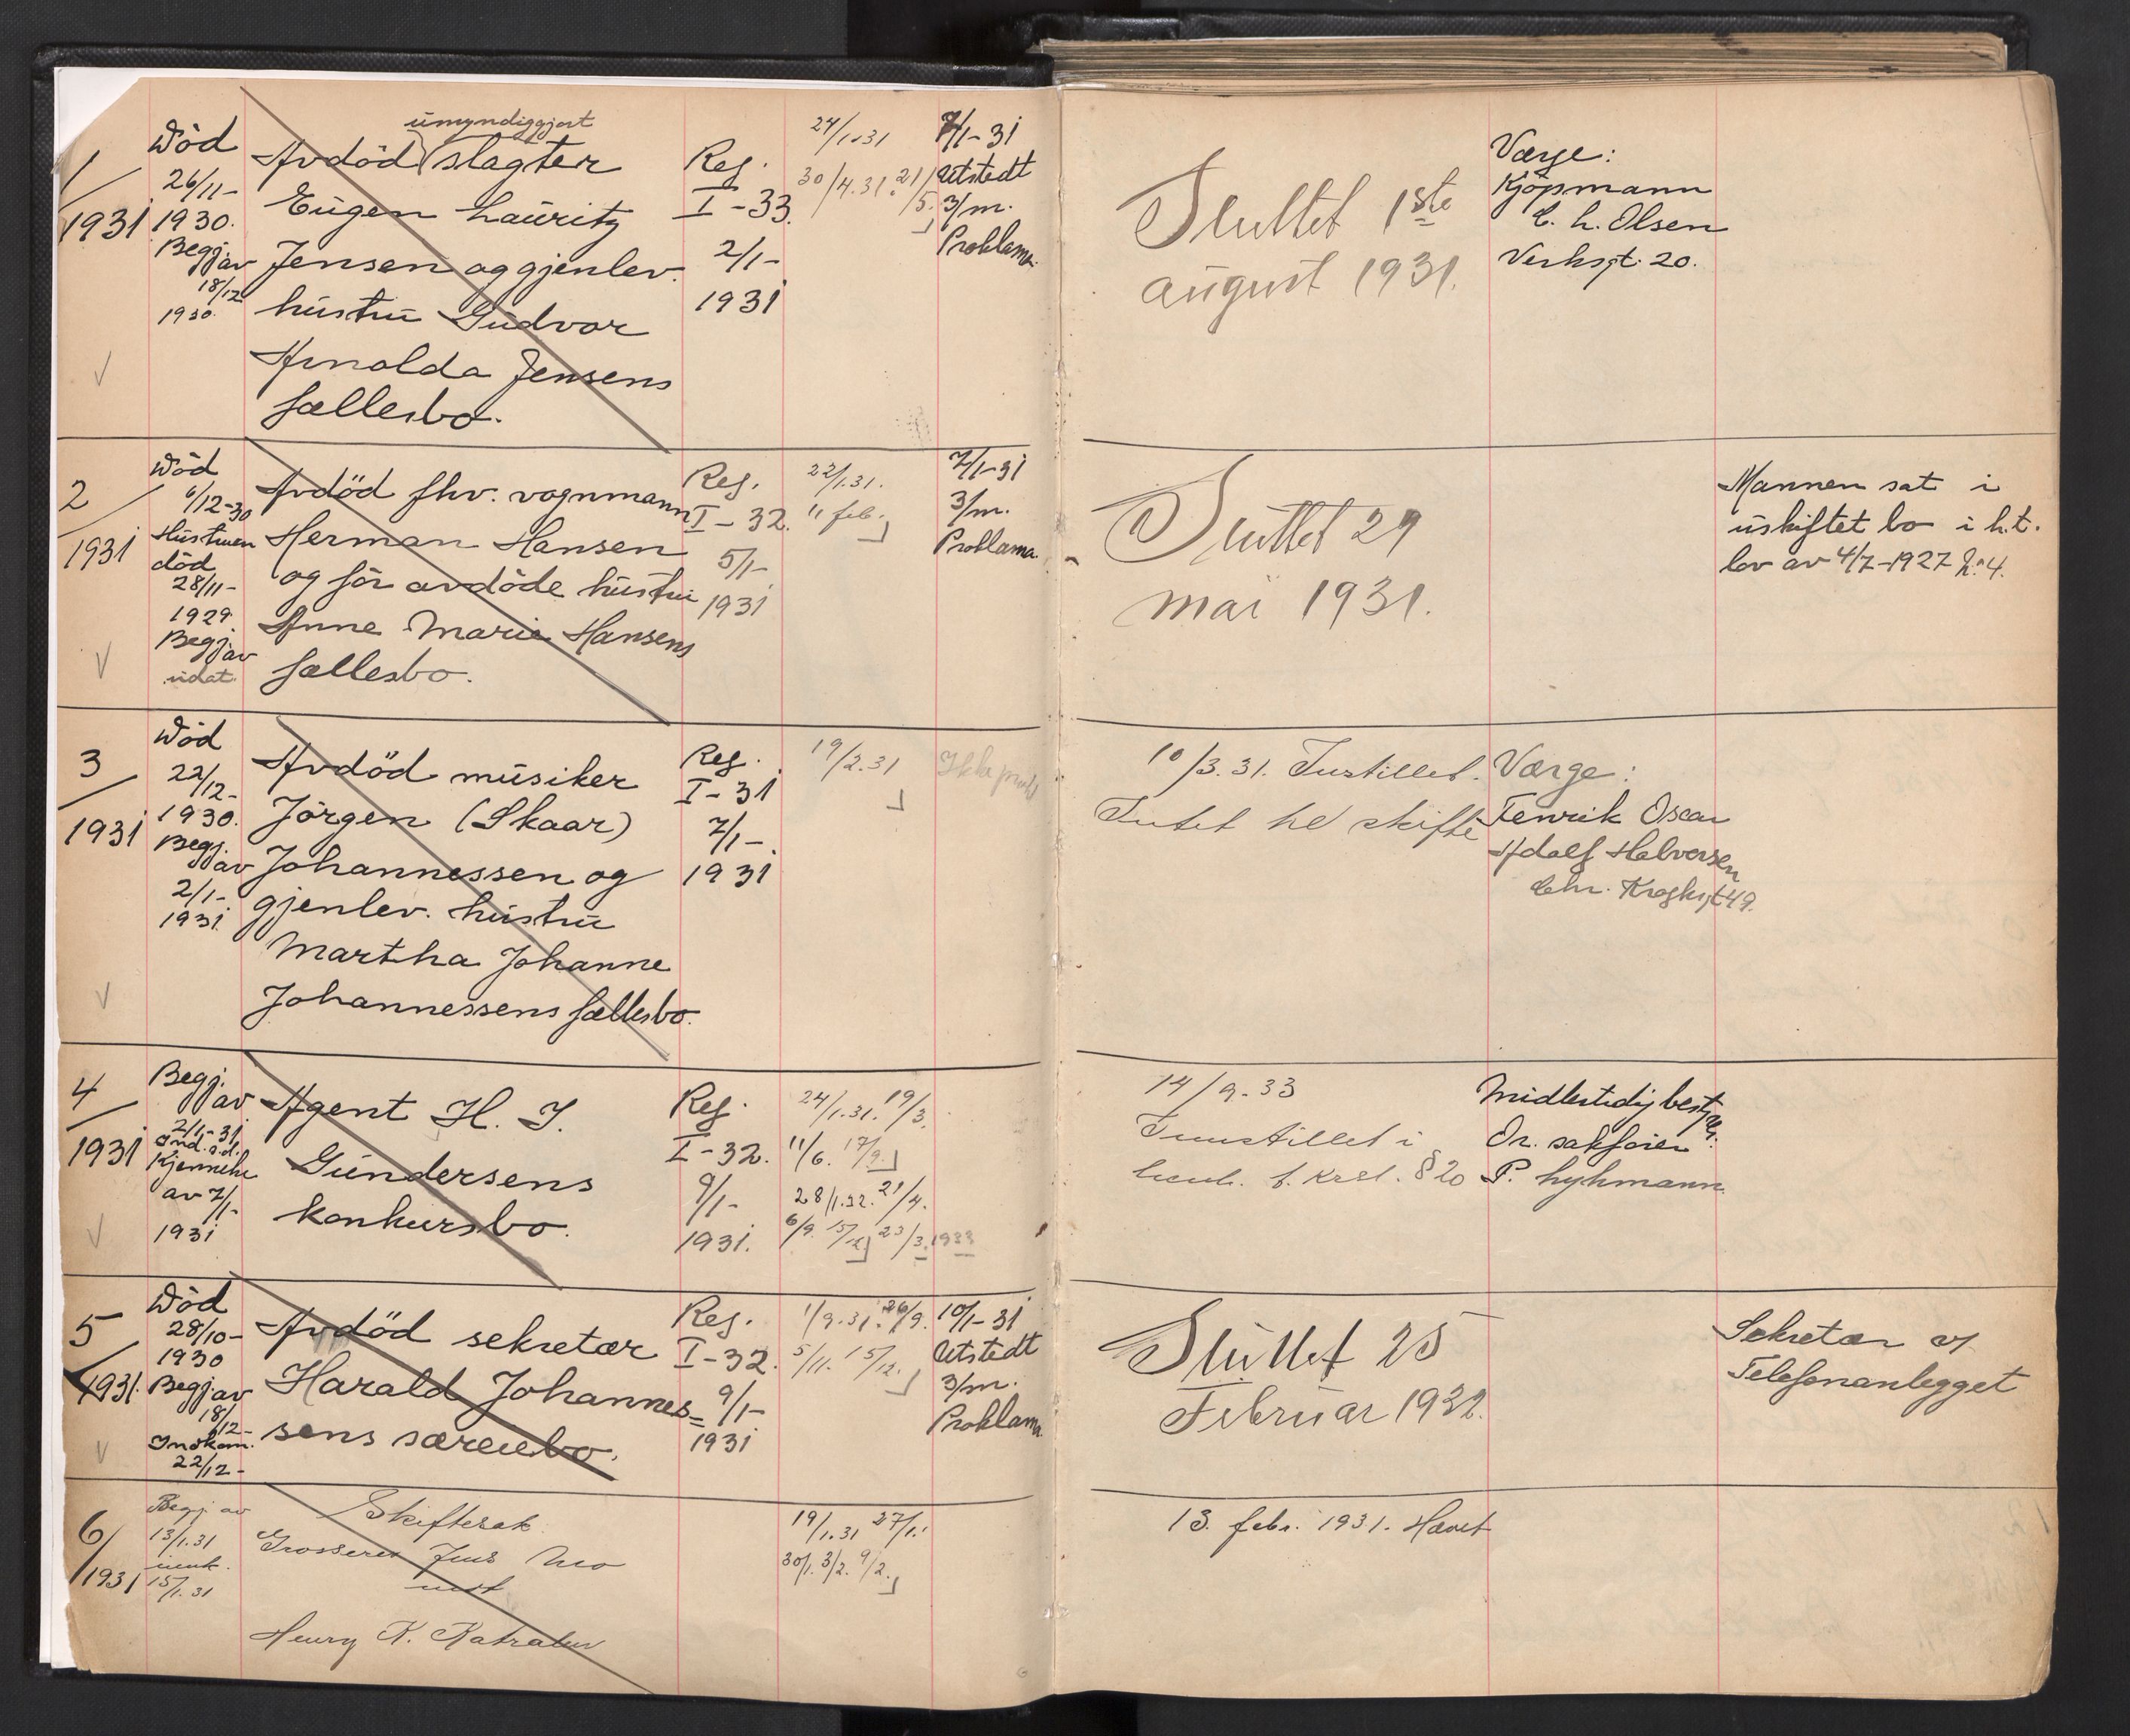 1/1931
Død
26/11-
1930.
Begj. av
18/12
1930.
umyndiggjort
Avdöd slagter
Eugen Lauritz
Jensen og gjenlev.
hustru Gudvor
Arnolda Jensens
fællesbo.
Reg.
I-33.
2/1-
1931
24/1.31
30/4.31. 21/5.
7/1-31
Utstedt
3/m.
Proklama.
Sluttet 1ste
august 1931.
Værge:
Kjöpmann
L. Olsen
Verksgt. 20.
2/1931
Død
6/12-30
Hustruen
död
28/11-
1929.
Begj. av
udat.
Avdöd fhv. vognmann
Herman Hansen
og för avdöde hustru
Anne Marie Hansens
fællesbo.
Reg.
I-32.
5/1-
1931
22/1.31.
11 feb.
7/1-31
3/m.
Proklama
Sluttet 29
mai 1931.
Mannen sat i
uskiftet bo i h.t.
lov av 4/7-1927 N:4.
3/1931
Død
22/12-
1930.
Begj. av
2/1-
1931.
Avdöd musiker
Jörgen (Skaar)
Johannessen og
gjenlev. hustru
Martha Johanne
Johannessens fællesbo.
Reg.
I-31
7/1-
1931
19/2.31
Ikke
10/3.31. Innstillet.
Intet til skifte
Værge:
Fenrik Oscar
Adolf Halvorsen
Chr. Kroghsgt 49.
4/1931
Begj. av
2/1-31
Kjennelse
av 7/1-
1931
Agent H. J.
Gundersens
konkursbo.
Reg.
I-32.
9/1-
1931.
24/1.31. 19/3.
11/6. 17/9.
28/1.32. 21/4.
6/9. 15/12. 23/3. 1933
14/9-33
Innstillet i
henh. t. krsl. § 20
Midlertidig bestyrer:
Or. sakförer
P. Lykmann
5/1931.
Død
28/10-
1930
Begj. av
18/12-
Innkom.
22/12-
Avdöd sekretær
Harald Johannes=
sens særeiebo.
Reg.
I-32.
9/1-
1931
1/9.31. 26/9.
5/11. 15/12.
10/1-31
Utstedt
3/m.
Proklama
Sluttet 25
Februar 1932.
Sekretær v/
Telefonanlegget
6/1931
Begj. av
13/1.31
innk.
15/1.31
Skiftesak
Grosserer Jens Mo
mot
Henry K.
19/1.31 27/1.
30/1. 3/2. 9/2.
13. febr. 1931. Hævet